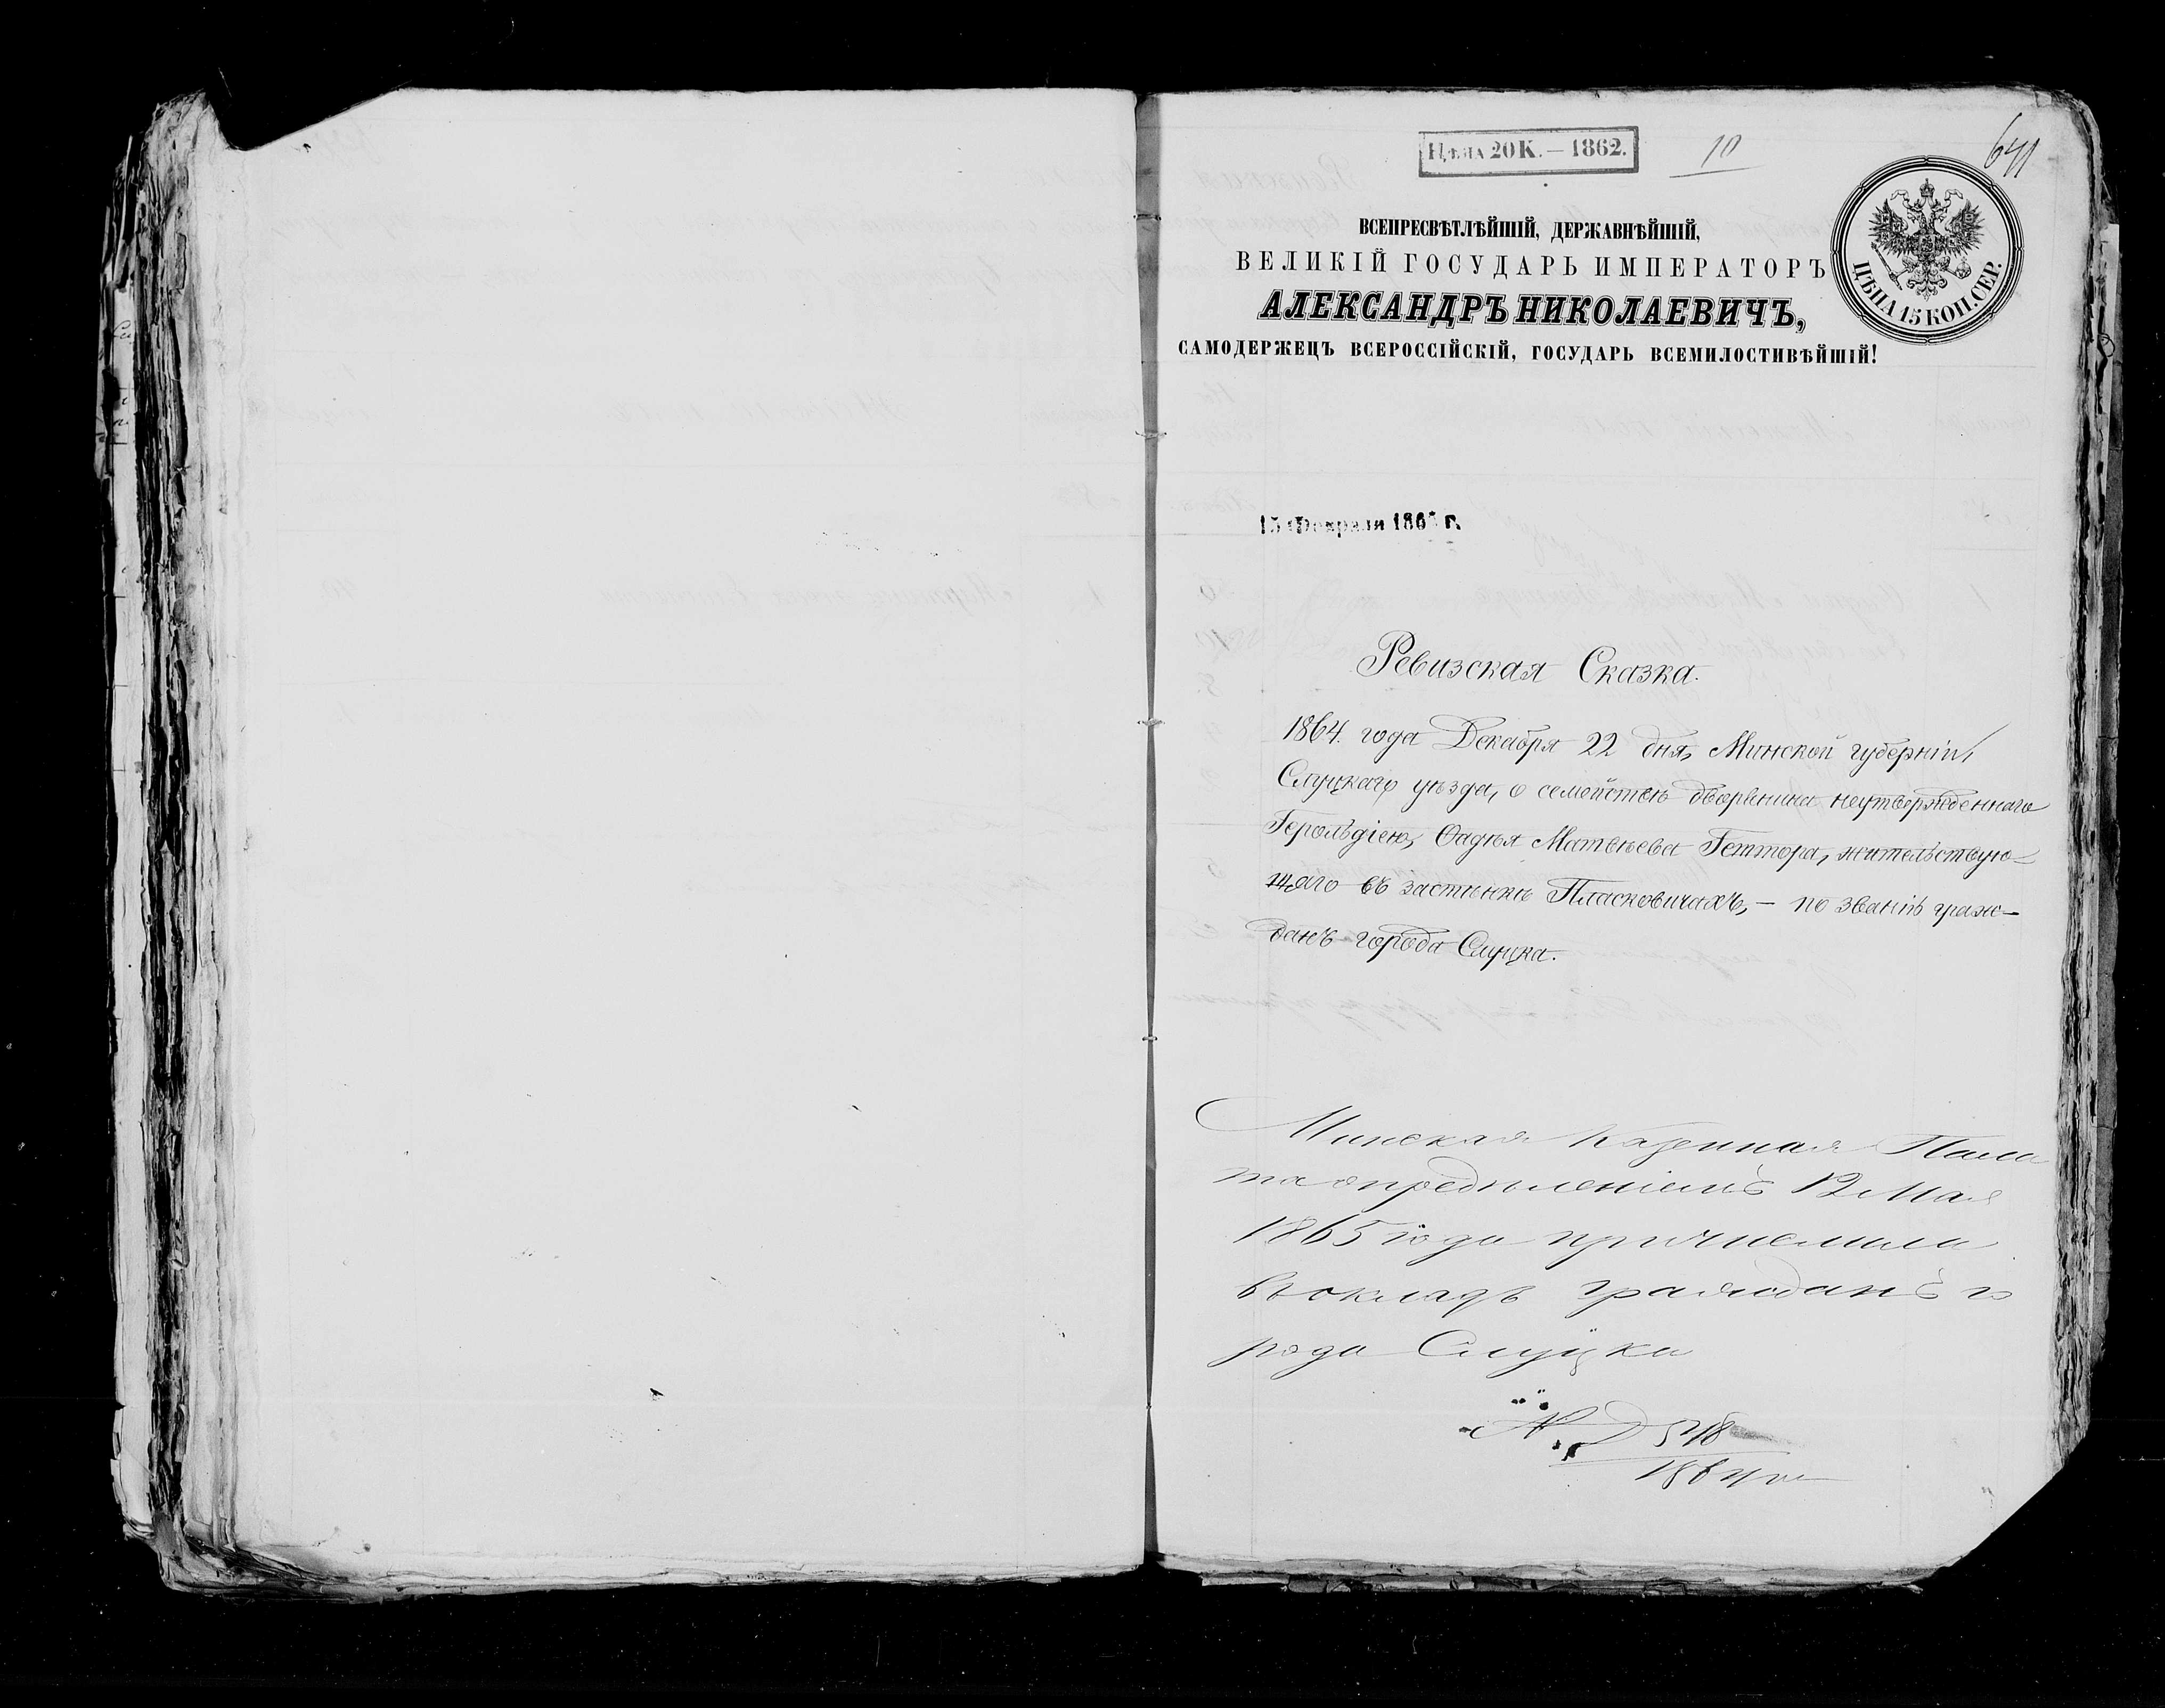 ЦѢНА 20 К. — 1862.
10
641
ВСЕПРЕСВѢТЛѢЙШІЙ, ДЕРЖАВНѢЙШІЙ,
ВЕЛИКІЙ ГОСУДАРЬ ИМПЕРАТОРЪ
АЛЕКСАНДРЪ НИКОЛАЕВИЧЪ,
САМОДЕРЖЕЦЪ ВСЕРОССІЙСКІЙ, ГОСУДАРЬ ВСЕМИЛОСТИВѢЙШІЙ!
ЦѢНА 15 КОП. СЕР.
15 Февраля 1865 г.
Ревизская Сказка.
1864. года Декабря 22 дня, Минской губерніи,
Слуцкаго уѣзда, о семействѣ дворянина неутвержденнаго
Герольдіею, Фадѣя Матвѣева Гептора, жительствую-
щаго въ застѣнкѣ Пласковичахъ, — по званію граж-
данъ города Слуцка.
Минская Казенная Пала
та опредѣленіемъ 12 Мая
1865 года причислила
въ окладъ гражданъ го
рода Слуцка
1864